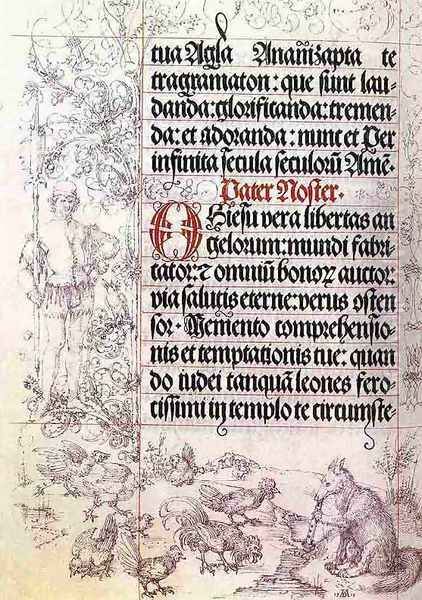 tua Agla Anamzapta te
tragramaton: que sunt lau-
danda: glorificanda: tremen-
da: et adoranda: nunc et Per
infinita secula seculorū Amē.
Pater Noster.
O Ihesu vera libertas an
gelorum: mundi fabri-
cator: et omniū bonoꝝ auctor:
via salutis eterne: verus osten
sor. Memento comprehensio-
nis et temptationis tue: quan
do iudei tanquā leones fero-
cissimi in templo te circumste-